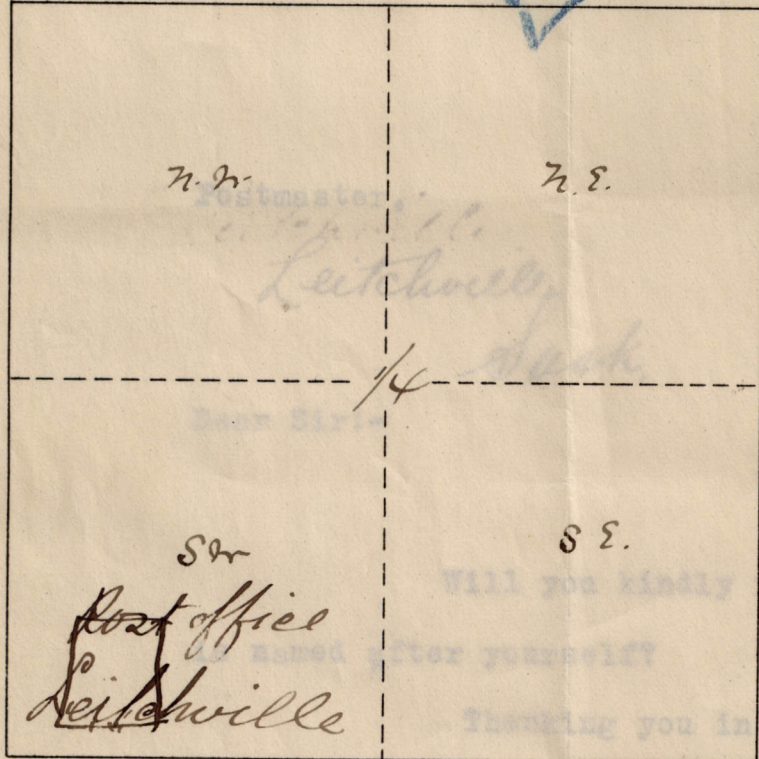 N.W.
N.E.
Postmaster,
Leitchville,
Sask
1/4
Dear Sir:-
SW
S E.
Will you kindly
Post office
is named after yourself?
Leitchville
Thanking you in